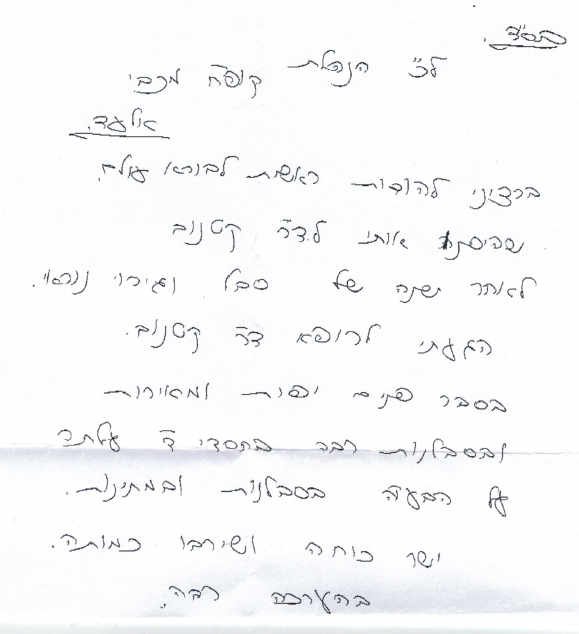 בס"ד.
לכ' הנהלת קופ"ח מכבי
אלעד.
ברצוני להודות ראשית לבורא עולם,
שהיפנה אותי לד"ר קטנוב
לאחר שנה של סבל וגירוי נוראי.
הגעתי לרופא ד"ר קטנוב.
בסבר פנים יפות ומאירות
ובסבלנות רבה בחסדי ד'
על הבעיה בסבלנות ובמתינות.
ישר כוחה ושירבו כמותה.
בהערכה רבה,